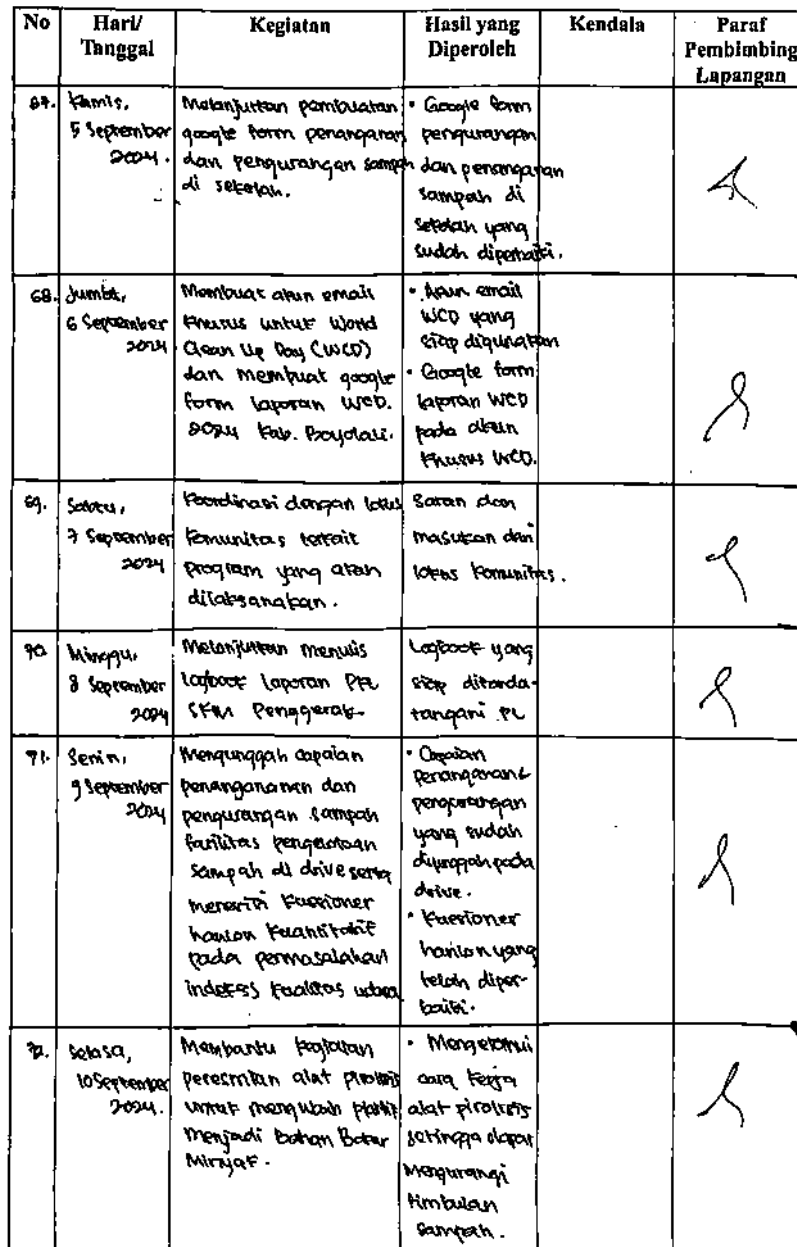 No Hari/ Tanggal Kegiatan Hasil yang Diperoleh Kendala Paraf Pembimbing Lapangan
67. Kamis, 5 September 2024.
Melanjutkan pembuatan
google form penanganan
dan pengurangan sampah
di sekolah.
• Google form
pengurangan
dan penanganan
sampah di
sekolah yang
sudah diperbaiki.
68. Jumat,
6 September
2024
Membuat akun email
khusus untuk World
Clean Up Day (WCD)
dan membuat google
form laporan WCD.
2024 Kab. Boyolali.
• Akun email
WCD yang
siap digunakan
• Google form
laporan WCD
pada akun
khusus WCD.
69. Sabtu,
7 September
2024
Koordinasi dengan lokus
komunitas terkait
program yang akan
dilaksanakan.
Saran dan
masukan dari
lokus komunitas.
70. Minggu,
8 September
2024
Melanjutkan menulis
logbook laporan PKL
SKM Penggerak
Logbook yang
siap ditanda-
tangani PL
71. Senin,
9 September
2024
Mengunggah capaian
penangananan dan
pengurangan sampah
fasilitas pengelolaan
sampah di drive serta
merevisi kuesioner
hanlon kuantitatif
pada permasalahan
indeks kualitas udara
• Capaian
penanganan &
pengurangan
yang sudah
diunggah pada
drive.
• Kuesioner
hanlon yang
telah diper-
baiki.
72. Selasa,
10 September
2024.
Membantu kegiatan
peresmian alat pirolisis
untuk mengubah plastik
menjadi Bahan Bakar
Minyak.
• Mengetahui
cara kerja
alat pirolisis
sehingga dapat
mengurangi
timbulan
sampah.